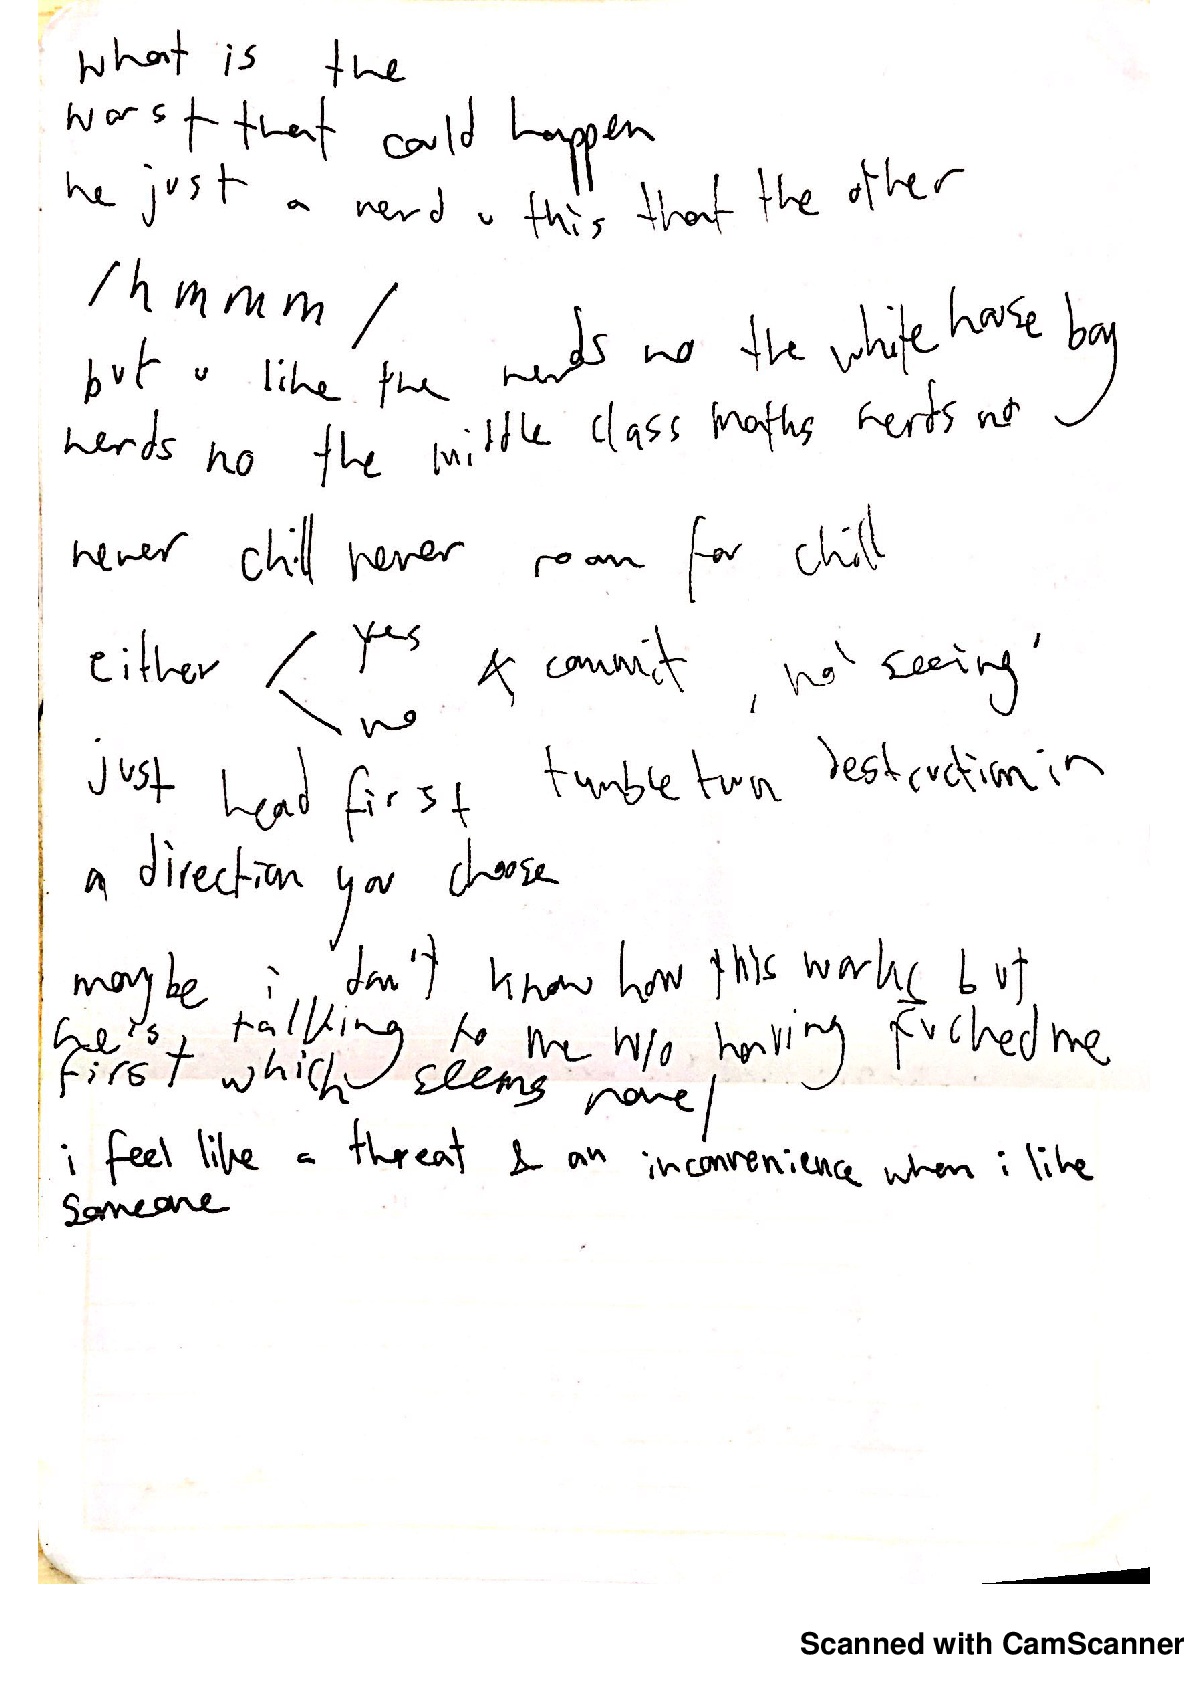 what is the
worst that could happen
he just a nerd u this that the other
/hmmm/
but u like the nerds no the white house boy
nerds no the middle class maths nerds no
never chill never room for chill
either < yes & commit, no 'seeing'
no
just head first tumble turn destruction in
a direction you choose
maybe i don't know how this works but
he is, talking to me w/o having fucked me
first which seems novel
i feel like a threat & an inconvenience when i like
someone
Scanned with CamScanner